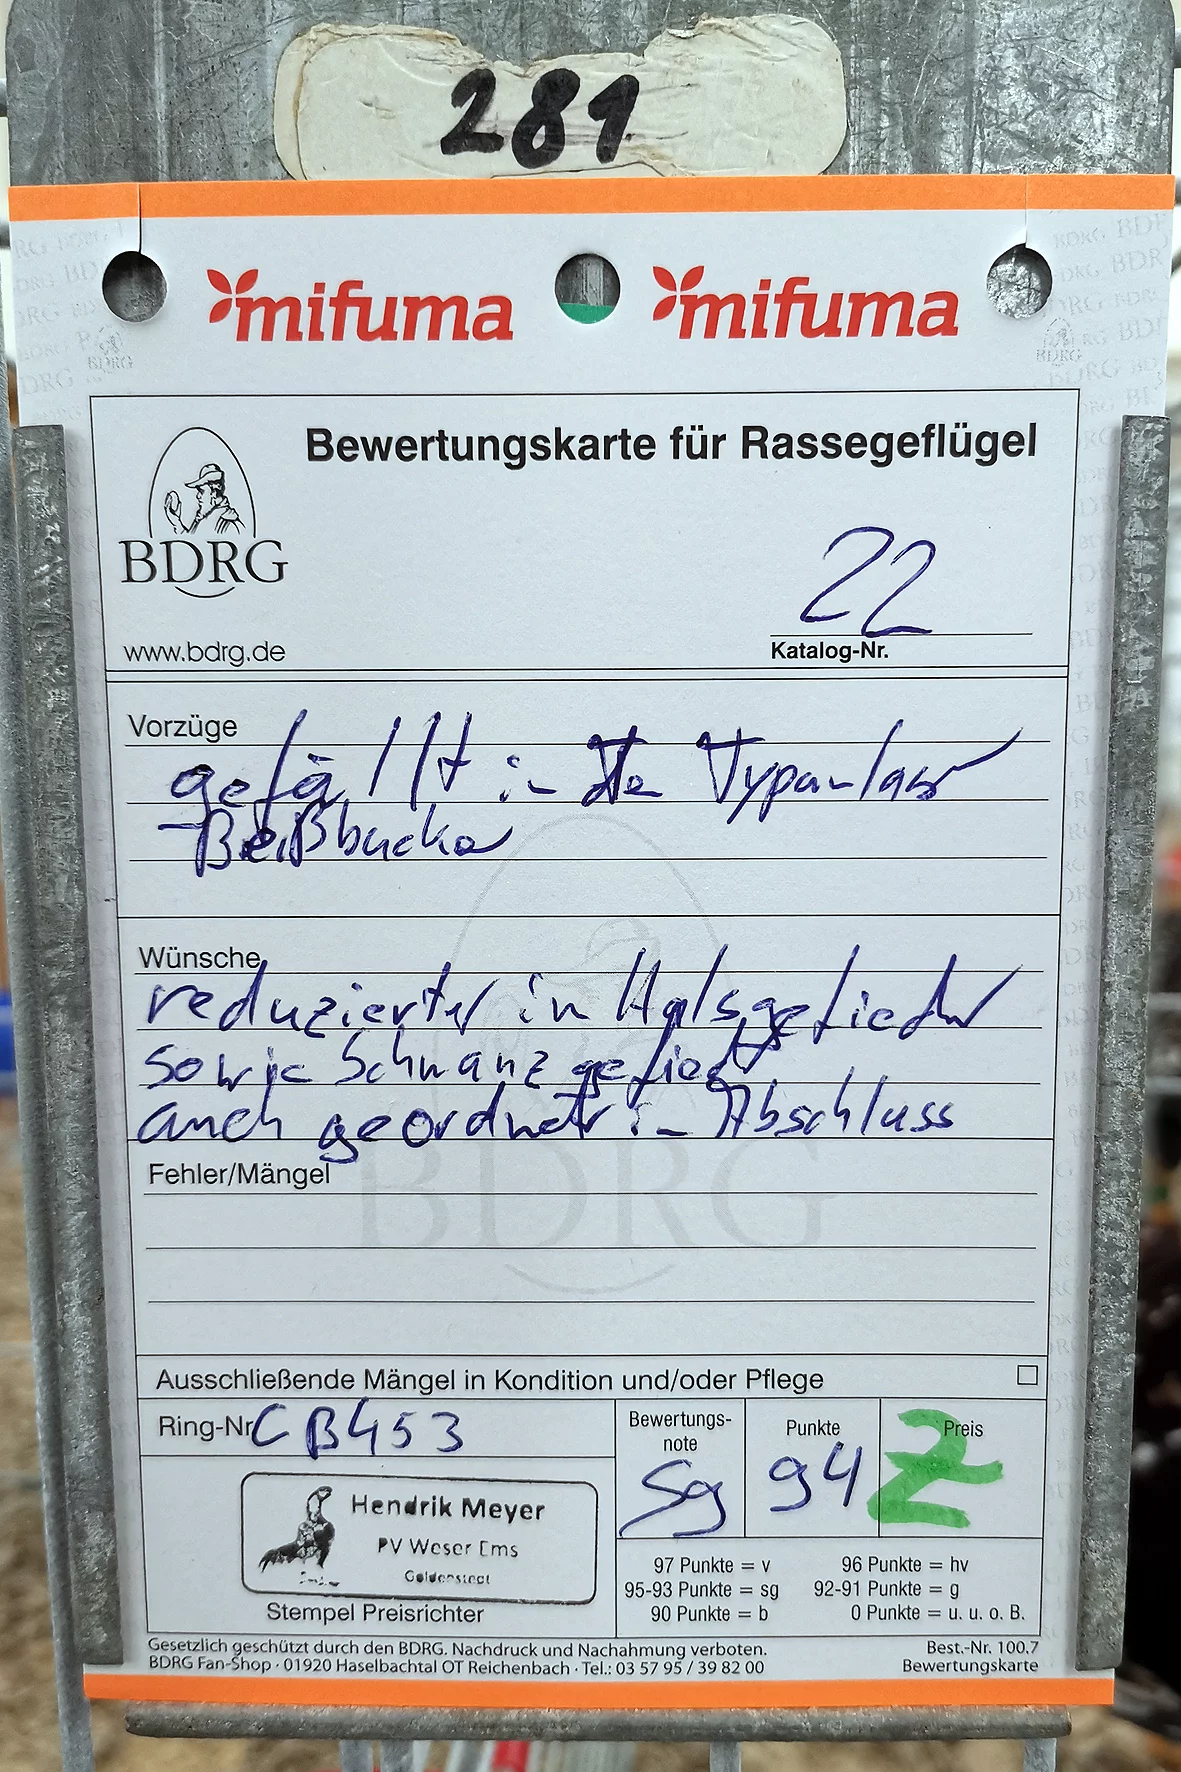 281
mifuma mifuma
Bewertungskarte für Rassegeflügel
BDRG
www.bdrg.de
22
Katalog-Nr.
Vorzüge
gefällt in der Typanlage
Beißbucke
Wünsche
reduzierter in Halsgefieder
sowie Schwanzgefieder
auch geordneter in Abschluss
Fehler/Mängel
Ausschließende Mängel in Kondition und/oder Pflege
Ring-Nr. CB453
Bewertungs-
note
Sg
Punkte
94
Preis
Z
Hendrik Meyer
PV Weser Ems
Goldenstedt
Stempel Preisrichter
97 Punkte = v 96 Punkte = hv
95-93 Punkte = sg 92-91 Punkte = g
90 Punkte = b 0 Punkte = u. u. o. B.
Gesetzlich geschützt durch den BDRG. Nachdruck und Nachahmung verboten.
BDRG Fan-Shop · 01920 Haselbachtal OT Reichenbach · Tel.: 03 57 95 / 39 82 00
Best.-Nr. 100.7
Bewertungskarte